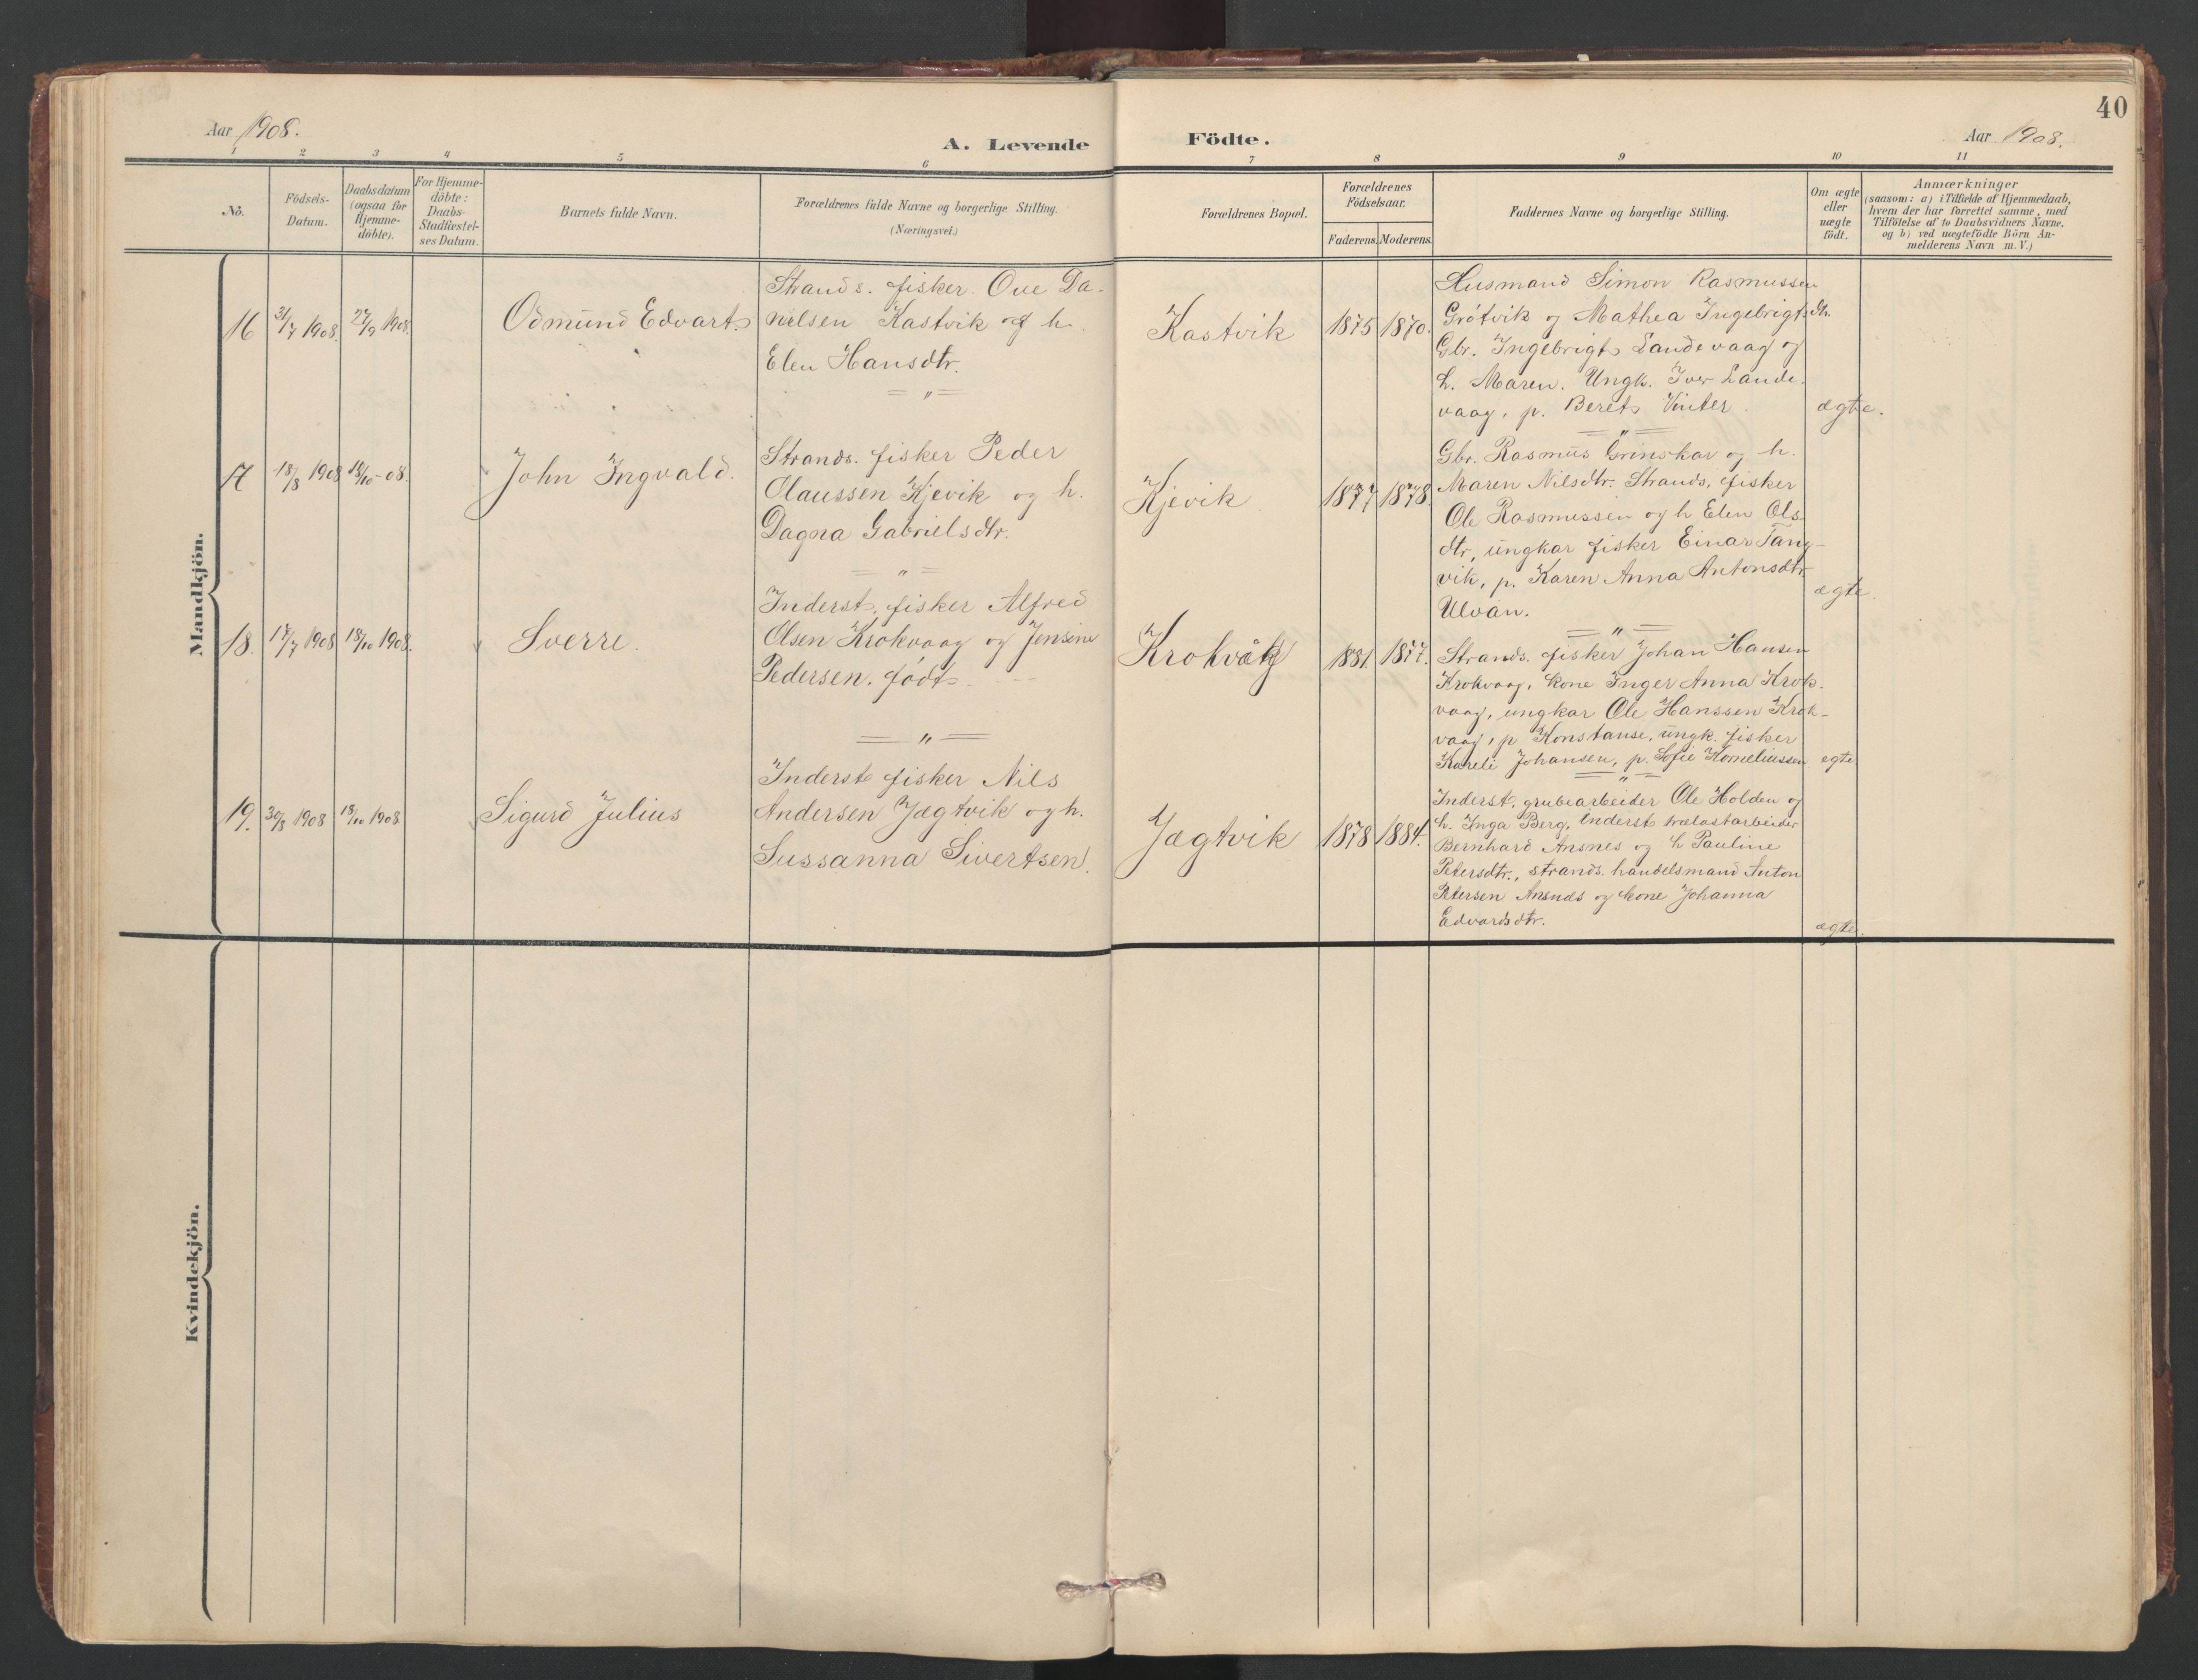 40
Aar 1908.
A. Levende Födte.
Aar 1908.
1 2 3 4 5 6 7 8 9 10 11
No.
Födsels-
Datum.
Daabsdatum
(ogsaa for
Hjemme-
döbte).
For Hjemme-
döbte:
Daabs-
Stadfæstel-
ses Datum.
Barnets fulde Navn.
Forældrenes fulde Navne og borgerlige Stilling.
(Næringsvei.)
Forældrenes Bopæl.
Forældrenes
Födselsaar.
Faderens. Moderens.
Faddernes Navne og borgerlige Stilling.
Om ægte
eller
uægte
födt.
Anmærkninger
(saasom: a) i Tilfælde af Hjemmedaab,
hvem der har forrettet samme, med
Tilföielse af to Daabsvidners Navne.
og b) ved uægtefödte Börn An-
melderens Navn m. V.)
Mandkjön.
16
31/7 1908
27/9 1908.
Odmund Edvart
Strands. fisker Ove Da-
nielsen Kastvik og h.
Elen Hansdtr.
= " =
Kastvik
1875
1870.
Husmand Simon Rasmussen
Grötvik og Mathea Ingebrigtsdtr.
Gbr. Ingebrigt Landevaag og
h. Maren. Ungk. Iver Lande-
vaag, p. Beret Vinter.
= " =
ægte.
17
18/8 1908
18/10-08.
John Ingvald.
Strands. fisker Peder
Olaussen Kjevik og h.
Dagna Gabrielsdtr.
= " =
Kjevik
1877
1878.
Gbr. Rasmus Grinskar og h.
Maren Nilsdtr. Strands. fisker
Ole Rasmussen og h Elen Ols-
dtr, ungkar fisker Einar Tang-
vik, p. Karen Anna Antonsdtr
Ulvan.
= " =
ægte.
18.
17/7 1908
18/10 1908.
Sverre.
Inderst, fisker Alfred
Olsen Krokvaag og Jensine
Pedersen. födt
= " =
Krokvåg
1881.
1877.
Strands. fisker Johan Hansen
Krokvaag, kone Inger Anna Krok-
vaag, ungkar Ole Hanssen Krok-
vaag, p Konstanse, ungk. fisker
Kareli Johansen, p. Sofie Korneliussen
= " =
egte
19.
30/8 1908
18/10 1908
Sigurd Julius
Inderst fisker Nils
Andersen Jægtvik og h.
Sussanna Sivertsen.
Jægtvik
1878
1884.
Inderst, grubearbeider Ole Holden og
h. Inga Berg, Inderst trælastarbeider
Bernhard Ansnes og h Pauline
Petersdtr., strands. handelsmand Anton
Petersen Ansnes og kone Johanna
Edvardsdtr.
ægte.
Kvindekjön.